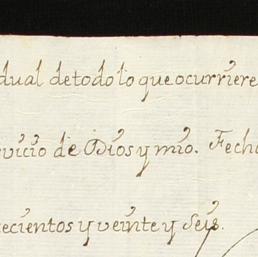 dual detodo lo que ocurriere
vicio de Dios y mio. Fecha
ecientos y veinte y Seis.